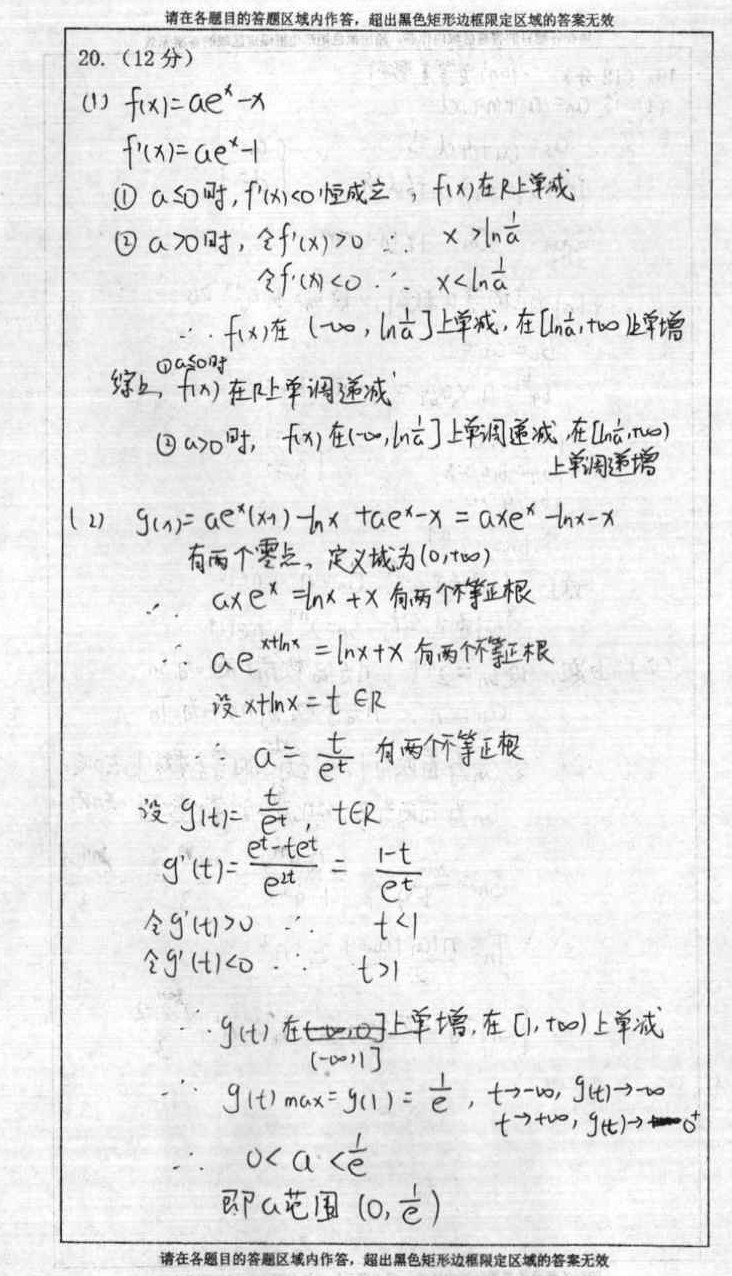 请在各题目的答题区域内作答，超出黑色矩形边框限定区域的答案无效
20.（12分）
(1) f(x)=ae^x-x
f'(x)=ae^x-1
① a≤0时, f'(x)<0恒成立, f(x)在R上单减
② a>0时, 令f'(x)>0 ∴ x>ln 1/a
令f'(x)<0 ∴ x<ln 1/a
∴ f(x)在 (-∞, ln 1/a]上单减, 在[ln 1/a, +∞)上单增
综上, ①a≤0时 f(x)在R上单调递减
② a>0时, f(x)在(-∞, ln 1/a]上单调递减, 在[ln 1/a, +∞)
上单调递增
(2) g(x)=ae^x(x-1)-lnx+ae^x-x=axe^x-lnx-x
有两个零点、定义域为(0,+∞)
∴ axe^x=lnx+x 有两个不等正根
∴ ae^{x+lnx}=lnx+x 有两个不等正根
设x+lnx=t∈R
∴ a=t/e^t 有两个不等正根
设g(t)=t/e^t, t∈R
g'(t)=(e^t-te^t)/e^{2t}=(1-t)/e^t
令g'(t)>0 ∴ t<1
令g'(t)<0 ∴ t>1
∴ g(t)在(-∞,1]上单增, 在[1,+∞)上单减
∴ g(t)max=g(1)=1/e, t→-∞, g(t)→-∞
t→+∞, g(t)→0⁺
∴ 0<a<1/e
即a范围(0, 1/e)
请在各题目的答题区域内作答，超出黑色矩形边框限定区域的答案无效